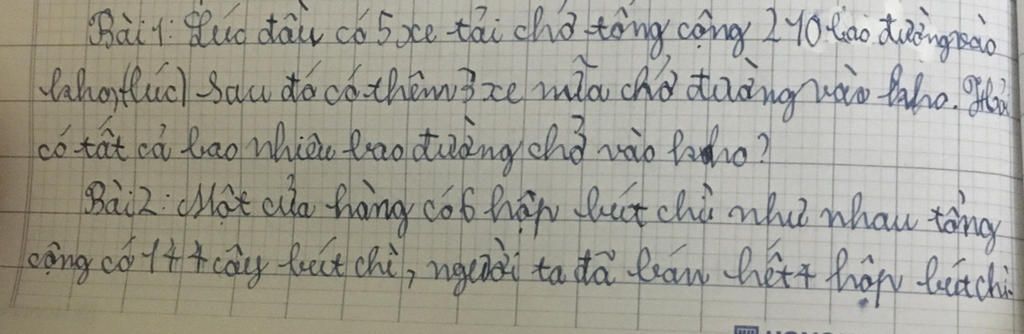 Bài 1: Lúc đầu có 5 xe tải chở tổng cộng 210 bao đường vào
kho, (lúc) sau đó có thêm 3 xe nữa chở đường vào kho. Hỏi
có tất cả bao nhiêu bao đường chở vào kho?
Bài 2: Một cửa hàng có 6 hộp bút chì như nhau tổng
cộng có 144 cây bút chì, người ta đã bán hết 4 hộp bút chì